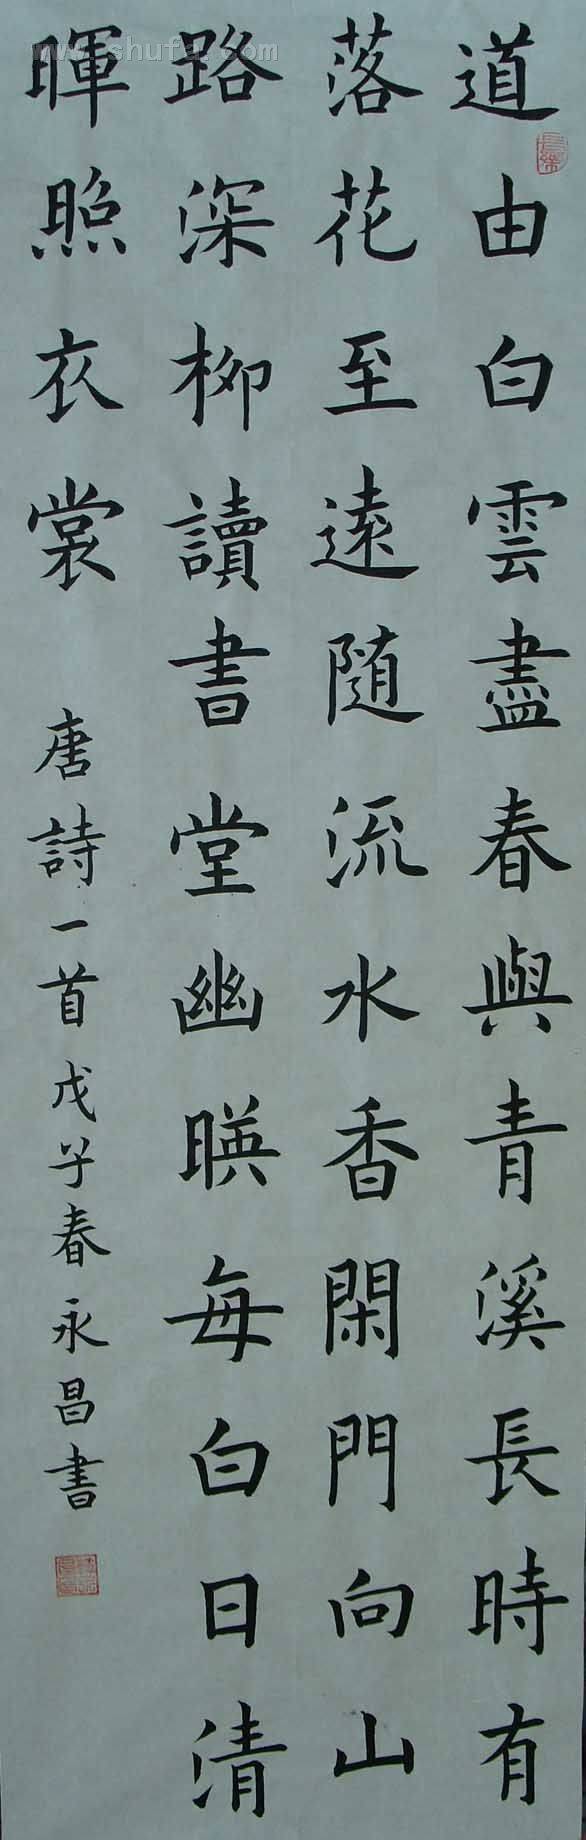 道由白雲盡春與青溪長時有
落花至遠隨流水香閑門向山
路深柳讀書堂幽暎每白日清
暉照衣裳
唐詩一首戊子春永昌書
www.shufa.com